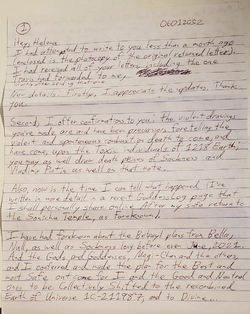 ①
06022052
Hey, Helena
I had attempted to write to you less than a month ago
(enclosed is the photocopy of the original returned letter).
I had received all of your letters including the one
Tora had forwarded to me,
Now details. Firstly, I appreciate the updates. Thank
you.
Second, I offer confirmations to you: the violent drawings
you've made, are and have been precursors foretelling the
violent and spontaneous combustion death to come, and
have come, upon the toxic individuals of 1218 Earth;
you may as well draw death scenes of and
Vladimir Putin as well on that note.
Also, now is the time I can tell what happened (I've
written in more detail in a recent page that
I shall personally share online After my safe return to
the Temple, as foreknown).
I have had foreknown about the Betrayal plans from Bella,
Niall, as well as long before ever June, 2021.
And the Gods and Goddesses, Magi-Chan and the other,
and I conferred and made the plan for the Best and
not Safe out come for I and the Good and Neutral
ones to be Collectively Shifted to the recombined
Earth of Universe 1C-211987, and to Divine